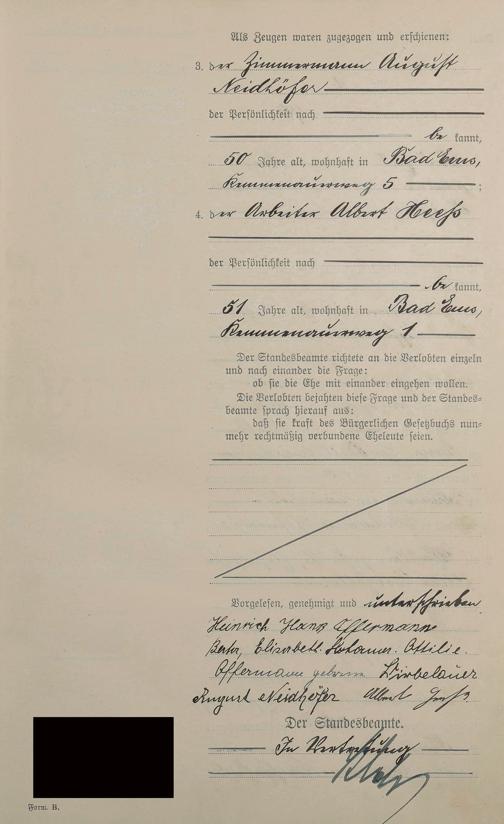 Als Zeugen waren zugezogen und erschienen:
3. der Zimmermann August
Neidhöfer
der Persönlichkeit nach
bekannt,
50 Jahre alt, wohnhaft in Bad Ems,
Kemmenauerweg 5 ;
4. der Arbeiter Albert Heess
der Persönlichkeit nach
bekannt,
51 Jahre alt, wohnhaft in Bad Ems,
Kemmenauerweg 1
Der Standesbeamte richtete an die Verlobten einzeln
und nach einander die Frage:
ob sie die Ehe mit einander eingehen wollen.
Die Verlobten bejahten diese Frage und der Standes-
beamte sprach hierauf aus:
daß sie kraft des Bürgerlichen Gesetzbuchs nun-
mehr rechtmäßig verbundene Eheleute seien.
Vorgelesen, genehmigt und unterschrieben
Heinrich Hans Offermann
Berta, Elisabeth Johanna. Ottilie.
Offermann geborene Wirbelauer
August Neidhöfer Albert Heess.
Der Standesbeamte.
In Vertretung
Form. B.